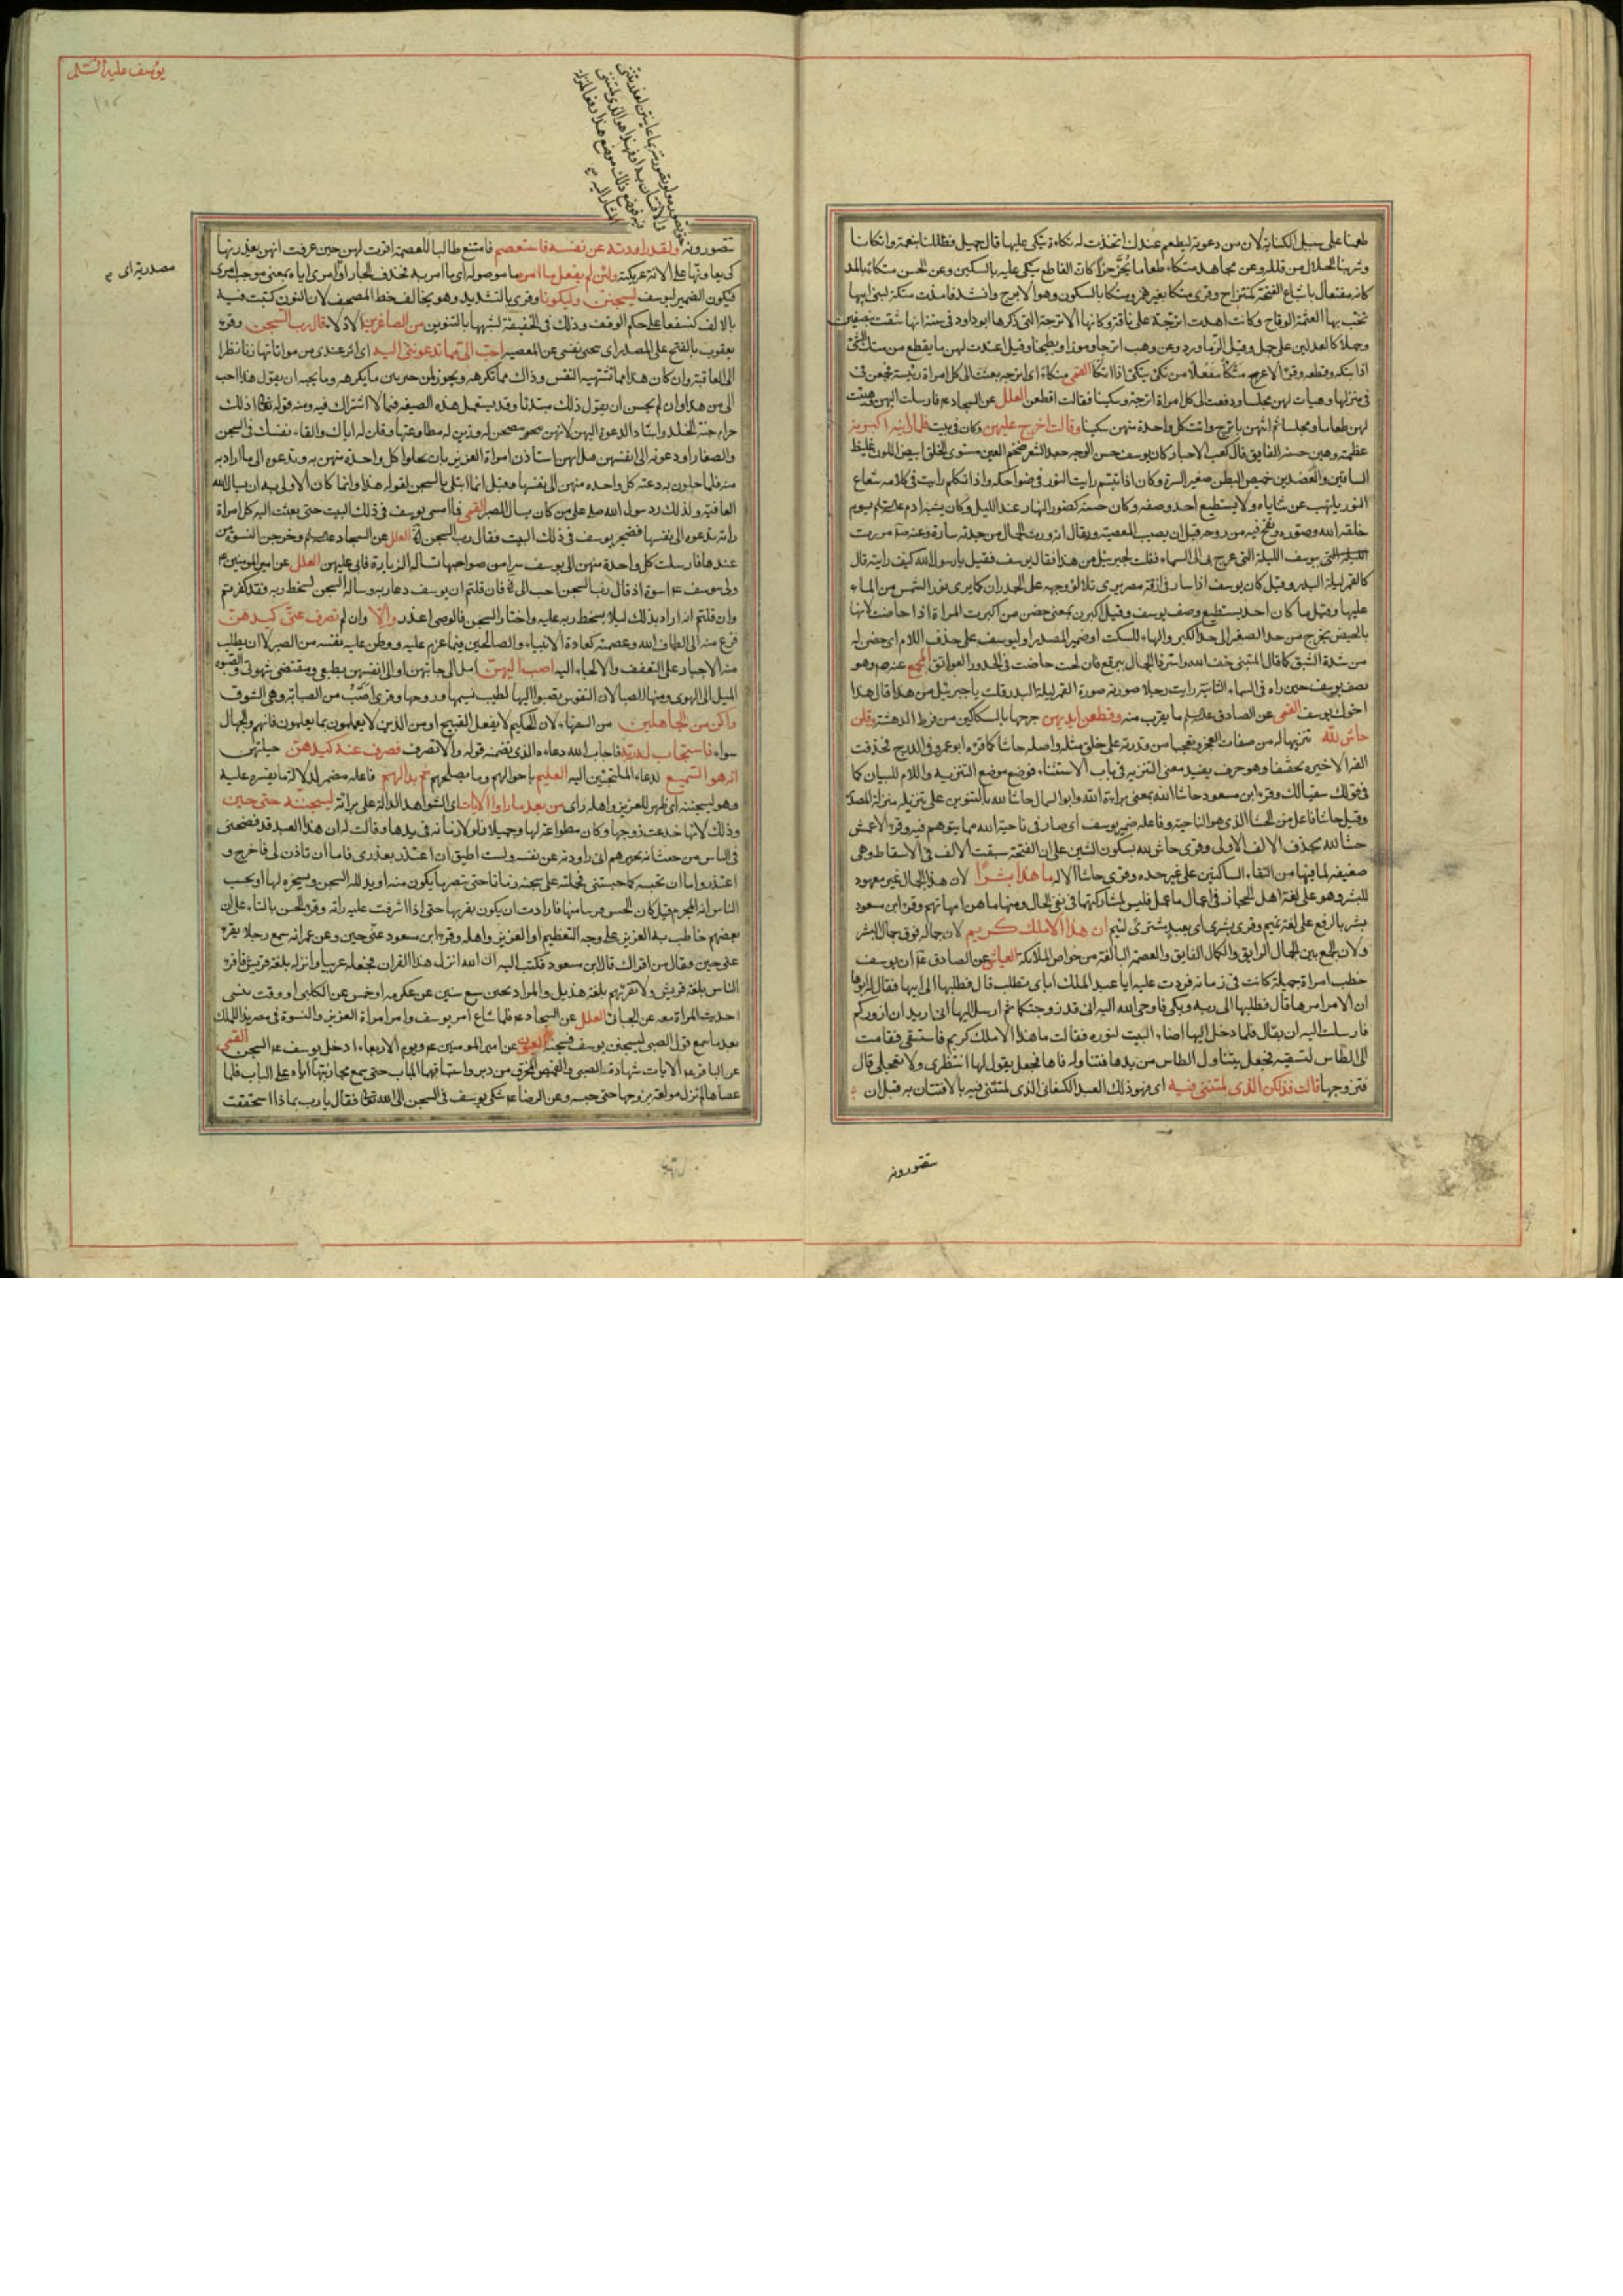 طعمنا على سبيل الكناية لان من دعوته ليطعم عندك اتخذت له تكاءة يتكى عليها قال جميل فظللنا بنعمة واتكانا
وشربنا الحلال من قلله وعن مجاهد متكاء طعاما يحز حزا كان القاطع يتكى عليه بالسكين وعن الحسن متكاء بالمد
كانه مفتعال باشباع الفتحة كمنتزاح وقرئ متكا بغير همز ومتكا بالسكون وهو الاترج وانشد فاهدت متكة لبنى ابيها
تخب بها العثمثة الوقاح وكانت اهدت اترجة على ناقة وكانها الاترجة التى ذكرها ابو داود فى سننه انها شقت بنصفين
وحملا كالعدلين على جمل وقيل الزماورد وعن وهب اترجا وموزا وبطيخا وقيل اعتدت لهن ما يقطع من متك الشئ
اذا بتكه وقطعه وقرء الاعرج متكأ مفعلا من تكى يتكى اذا اتكا القمى متكاء اى اترجه بعثت الى كل امراة رئيسة فجمعن فى
فى منزلها وهيات لهن مجلسا ودفعت الى كل امراة اترجة وسكينا فقالت اقطعن العلل عن السجاد ع فارسلت اليهن وهيئت
لهن طعاما ومجلسا ثم اتتهن باترج واتت كل واحدة منهن سكينا وقالت اخرج عليهن وكان فى بيت فلما راينه اكبرنه
عظمنه وهبن حسنه الفايق قال كعب الاحبار كان يوسف حسن الوجه جعد الشعر ضخم العين مستوى الخلق ابيض اللون غليظ
الساقين والعضدين خميص البطن صغير السرة وكان اذا تبسم رايت النور فى ضواحكه واذا تكلم رايت فى كلامه شعاع
النور يلتهب عن ثناياه ولا يستطيع احد وصفه وكان حسنه كضوء النهار عند الليل وكان يشبه ادم ع يوم
خلقه الله وصوره ونفخ فيه من روحه قبل ان يصيب المعصية ويقال انه ورث الجمال من جدته سارة وعنه ص مررت
الليلة التى بيوسف الليلة التى عرج بى الى السماء فقلت لجبرئيل من هذا فقال يوسف فقيل يا رسول الله كيف رايته قال
كالقمر ليلة البدر وقيل كان يوسف اذا سار فى ازقة مصر يرى تلالؤ وجهه على الجدران كما يرى نور الشمس من الماء
عليها وقيل ما كان احد يستطيع وصف يوسف وقيل اكبرن بمعنى حضن من اكبرت المراة اذا حاضت لانها
بالحيض يخرج من حد الصغر الى حد الكبر والهاء للسكت او ضمير المصدر او ليوسف على حذف اللام اى حضن له
من شدة الشبق كما قال المتنبى خف الله واستر ذا الجمال ببرقع فان لحت حاضت فى الخدور العواتق المجمع عنه ص وهو
يصف يوسف حين راه فى السماء الثانية رايت رجلا صورته صورة القمر ليلة البدر قلت يا جبرئيل من هذا قال هذا
اخوك يوسف القمى عن الصادق ع ما يقرب منه وقطعن ايديهن جرحنها بالسكاكين من فرط الدهشة وقلن
حاش لله تنزيها له من صفات العجز وتعجبا من قدرته على خلق مثله واصله حاشا كما قرء ابو عمرو فى الدرج فحذفت
الفه الاخيرة تخفيفا وهو حرف يفيد معنى التنزيه فى باب الاستثناء فوضع موضع التنزيه واللام للبيان كما
فى قولك سقيا لك وقرء ابن مسعود حاشا الله بمعنى براءة الله وابو السمال حاشا لله بالتنوين على تنزيله منزلة المصدر
وقيل حاشا فاعل من الحشا الذى هو الناحية وفاعله ضمير يوسف اى صار فى ناحية الله مما يتوهم فيه وقرء الاعمش
حشا لله بحذف الالف الاولى وقرئ حاش لله بسكون الشين على ان الفتحة سبقت الالف فى الاسقاط وهى
ضعيفة لما فيها من التقاء الساكنين على غير حده وقرئ حاشا الاله ما هذا بشرا لان هذا الجمال غير معهود
للبشر وهو على لغة اهل الحجاز فى اعمال ما عمل فليس لمشاركتها فى نفى الحال ومنها ما هن امهاتهم وقرء ابن مسعود
بشر بالرفع على لغة تميم وقرئ بشرى اى بعبد مشترى لئيم ان هذا الا ملك كريم لان جماله فوق جمال البشر
ولان الجمع بين الجمال الرايق والكمال الفايق والعصمة البالغة من خواص الملائكة العياشى عن الصادق ع ان يوسف
خطب امراة جميلة كانت فى زمانه فردت عليه ايا عبد الملك اياى تطلب قال فطلبها الى ابيها فقال له ابوها
ان الامر امرها قال فطلبها الى ربه وبكى فاوحى الله اليه انى قد زوجتكها ثم ارسل اليها انى اريد ان ازوركم
فارسلت اليه ان تعال فلما دخل اليها اضاء البيت لنوره فقالت ما هذا الا ملك كريم فاستسقى فقامت
الى الطاس لتسقيه فجعل يتناول الطاس من يدها فتناوله فاها فجعل يقول لها انتظرى ولا تعجلى قال
فتزوجها قالت فذلكن الذى لمتننى فيه اى فهو ذلك العبد الكنعانى الذى لمتننى فيه بالافتتان به قبل ان
تتصورونه
يوسف عليه السلم
مصدرية اى
تتصورونه ولقد راودته عن نفسه فاستعصم فامتنع طالبا للعصمة اقرت لهن حين عرفت انهن يعذرنها
كى يعاونها على الانة عريكته ولئن لم يفعل ما امره ما موصوله اى ما امر به فحذف الجار او امرى اياه بمعنى موجب امرى
فيكون الضمير ليوسف ليسجنن وليكونا وقرئ بالتشديد وهو يخالف خط المصحف لان النون كتبت فيه
بالالف كنسفعا على حكم الوقف وذلك فى الخفيفة لشبهها بالتنوين من الصاغرين الاذلاء قال رب السجن وقرء
يعقوب بالفتح على المصدر اى سجن نفسى عن المعصية احب الى مما تدعوننى اليه اى اثر عندى من مواتاتها زنا نظرا
الى العاقبة وان كان هذا مما تشتهيه النفس وذاك مما تكرهه ويجوز لمن خير بين ما يكرهه وما يحبه ان يقول هذا احب
الى من هذا وان لم يحسن ان يقول ذلك مبتدئا وقد يستعمل هذه الصيغه فيما لا اشتراك فيه ومنه قوله تعالى اذلك
خير ام جنة الخلد واسناد الدعوة اليهن لانهن نصحن له وزين له مطاوعتها وقلن له اياك والقاء نفسك فى السجن
والصغار او دعونه الى انفسهن
العافية ولذلك رد رسول الله ص على من كان يسال الصبر القمى فما امسى يوسف فى ذلك البيت حتى بعثت اليه كل امراة
راته تدعوه الى نفسها فضجر يوسف فى ذلك البيت فقال رب السجن الآية العلل عن السجاد ع وخرجن النسوة من
عندها فارسلت كل واحدة منهن الى يوسف سرا من صواحبها تساله الزيارة فابى عليهن العلل عن امير المومنين ع
ولى بيوسف ع اسوة اذ قال رب السجن احب الى فان قلتم ان يوسف دعا ربه وساله السجن لسخط ربه فقد كفرتم
وان قلتم انه اراد بذلك ليلا يسخط ربه عليه واختار السجن فالوصى اعذر والا وان لم تصرف عنى كيدهن
فزع منه الى الطاف الله وعصمته كعادة الانبياء والصالحين فيما عزم عليه ووطن عليه نفسه من الصبر لا ان يطلب
منه الاجبار على التعفف والالجاء اليه اصب اليهن امل الى جانبهن او الى انفسهن بطبعى ومقتضى شهوتى والصبوة
الميل الى الهوى ومنها الصبا لان النفوس تصبوا اليها لطيب نسيمها وروحها وقرئ اصب من الصبابة وهى الشوق
واكن من الجاهلين من السفهاء لان الحكيم لا يفعل القبيح او من الذين لا يعملون بما يعلمون فانهم والجهال
سواء فاستجاب له ربه فاجاب الله دعاءه الذى تضمنه قوله والا تصرف فصرف عنه كيدهن حيلتهن
انه هو السميع لدعاء الملتجئين اليه العليم باحوالهم وما يصلحهم ثم بدا لهم فاعله مضمر لدلالة ما يفسره عليه
وهو ليسجننه اى ظهر للعزيز واهله راى من بعد ما راوا الايات اى الشواهد الدالة على براته ليسجننه حتى حين
وذلك لانها خدعت زوجها وكان مطواعة لها وجميلا ذلولا زمامه فى يدها وقالت له ان هذا العبد قد فضحنى
فى الناس من حيث انه يخبرهم انى راودته عن نفسه ولست اطيق ان اعتذر بعذرى فاما ان تاذن لى فاخرج و
اعتذر واما ان تحبسه كما حبستنى فحملته على سجنه زمانا حتى تبصر ما يكون منه او يذلله السجن ويسخره لها او يحسب
الناس انه المجرم قيل كان الحبس قريبا منها فارادت ان يكون بقربها حتى اذا اشرفت عليه راته وقرء الحسن بالتاء على ان
بعضهم خاطب به العزيز على وجه التعظيم او العزيز واهله وقرء ابن مسعود عتى حين وعن عمر انه سمع رجلا يقرء
عتى حين فقال من اقراك قال ابن مسعود فكتب اليه ان الله انزل هذا القران فجعله عربيا وانزله بلغة قريش فاقرء
الناس بلغة قريش ولا تقرئهم بلغة هذيل والمراد بحين سبع سنين عن عكرمه او خمس عن الكلبى او وقت ينسى
احديث المراة معه عن الجبائى العلل عن السجاد ع فلما شاع امر يوسف وامر امراة العزيز والنسوة فى مصر بدا للملك
بعد ما سمع قول الصبى ليسجنن يوسف فسجنه العيون عن امير المومنين ع ويوم الاربعاء ادخل يوسف ع السجن القمى
عن الباقر ع الايات شهادة الصبى والقميص المخرق من دبر واستباقهما الباب حتى سمع مجاذبتها اياه على الباب فلما
عصاها لم تزل مولعة بزوجها حتى حبسه وعن الرضا ع شكى يوسف فى السجن الى الله تعالى فقال يا رب بماذا استحققت